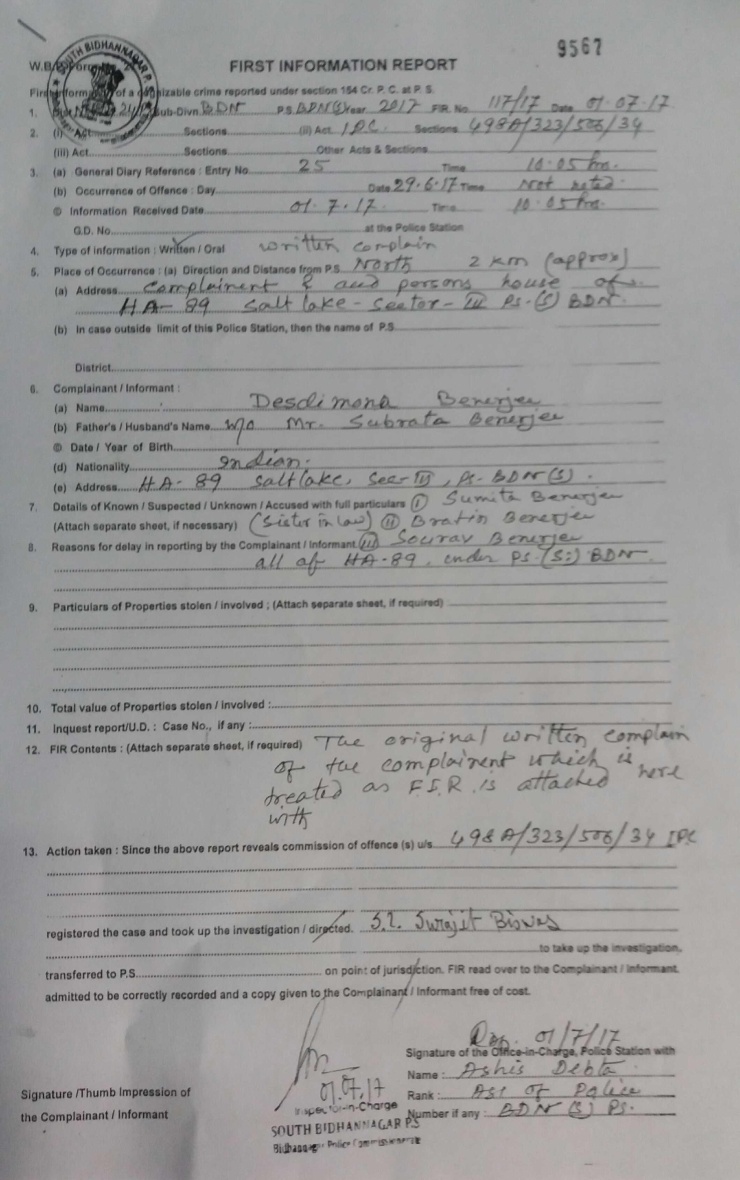 9567
SOUTH BIDHANNAGAR P.S.
W.B.P. Form
FIRST INFORMATION REPORT
First Information of a cognizable crime reported under section 154 Cr. P. C. at P. S.
1. Sub-Divn. BDN P.S. BDN(S) Year 2017 FIR. No. 117/17 Date 01.07.17
2. (i) Act Sections (ii) Act. IPC. Sections 498A/323/506/34
(iii) Act Sections Other Acts & Sections
3. (a) General Diary Reference : Entry No. 25 Time 10.05 hrs.
(b) Occurrence of Offence : Day Date 29.6.17 Time Not noted.
© Information Received Date 01.7.17. Time 10.05 hrs.
G.D. No. at the Police Station
4. Type of information : Written / Oral written complain
5. Place of Occurrence : (a) Direction and Distance from P.S. North 2 km (approx)
(a) Address Complainent & accd persons house of.
HA-89 Salt lake - Sector - III Ps. (S) BDN.
(b) In case outside limit of this Police Station, then the name of P.S.
District
6. Complainant / Informant :
(a) Name Desdimona Benerjee
(b) Father's / Husband's Name W/o Mr. Subrata Benerjee
© Date / Year of Birth
(d) Nationality Indian.
(e) Address HA-89 Saltlake, Sec-III, Ps. BDN(S).
7. Details of Known / Suspected / Unknown / Accused with full particulars (i) Sumita Benerjee
(Attach separate sheet, if necessary) (Sister in law) (ii) Bratin Benerjee
8. Reasons for delay in reporting by the Complainant / Informant (iii) Sourav Benerjee
all of HA-89, under PS. (S) BDN.
9. Particulars of Properties stolen / involved ; (Attach separate sheet, if required)
10. Total value of Properties stolen / involved :
11. Inquest report/U.D. : Case No., if any :
12. FIR Contents : (Attach separate sheet, if required) The original written complain
of the complainent which is here
treated as F.I.R. is attached
with
13. Action taken : Since the above report reveals commission of offence (s) u/s. 498A/323/506/34 IPC
registered the case and took up the investigation / directed. S.I. Surajit Biswas
to take up the investigation.
transferred to P.S. on point of jurisdiction. FIR read over to the Complainant / Informant.
admitted to be correctly recorded and a copy given to the Complainant / Informant free of cost.
01/7/17
Signature of the Office-in-Charge, Police Station with
Name : Ashis Debta
01.07.17
Rank : ASI of Police
Signature /Thumb Impression of
the Complainant / Informant
Inspector-in-Charge
Number if any : BDN (S) PS.
SOUTH BIDHANNAGAR P.S
Bidhannagar Police Commissionerate